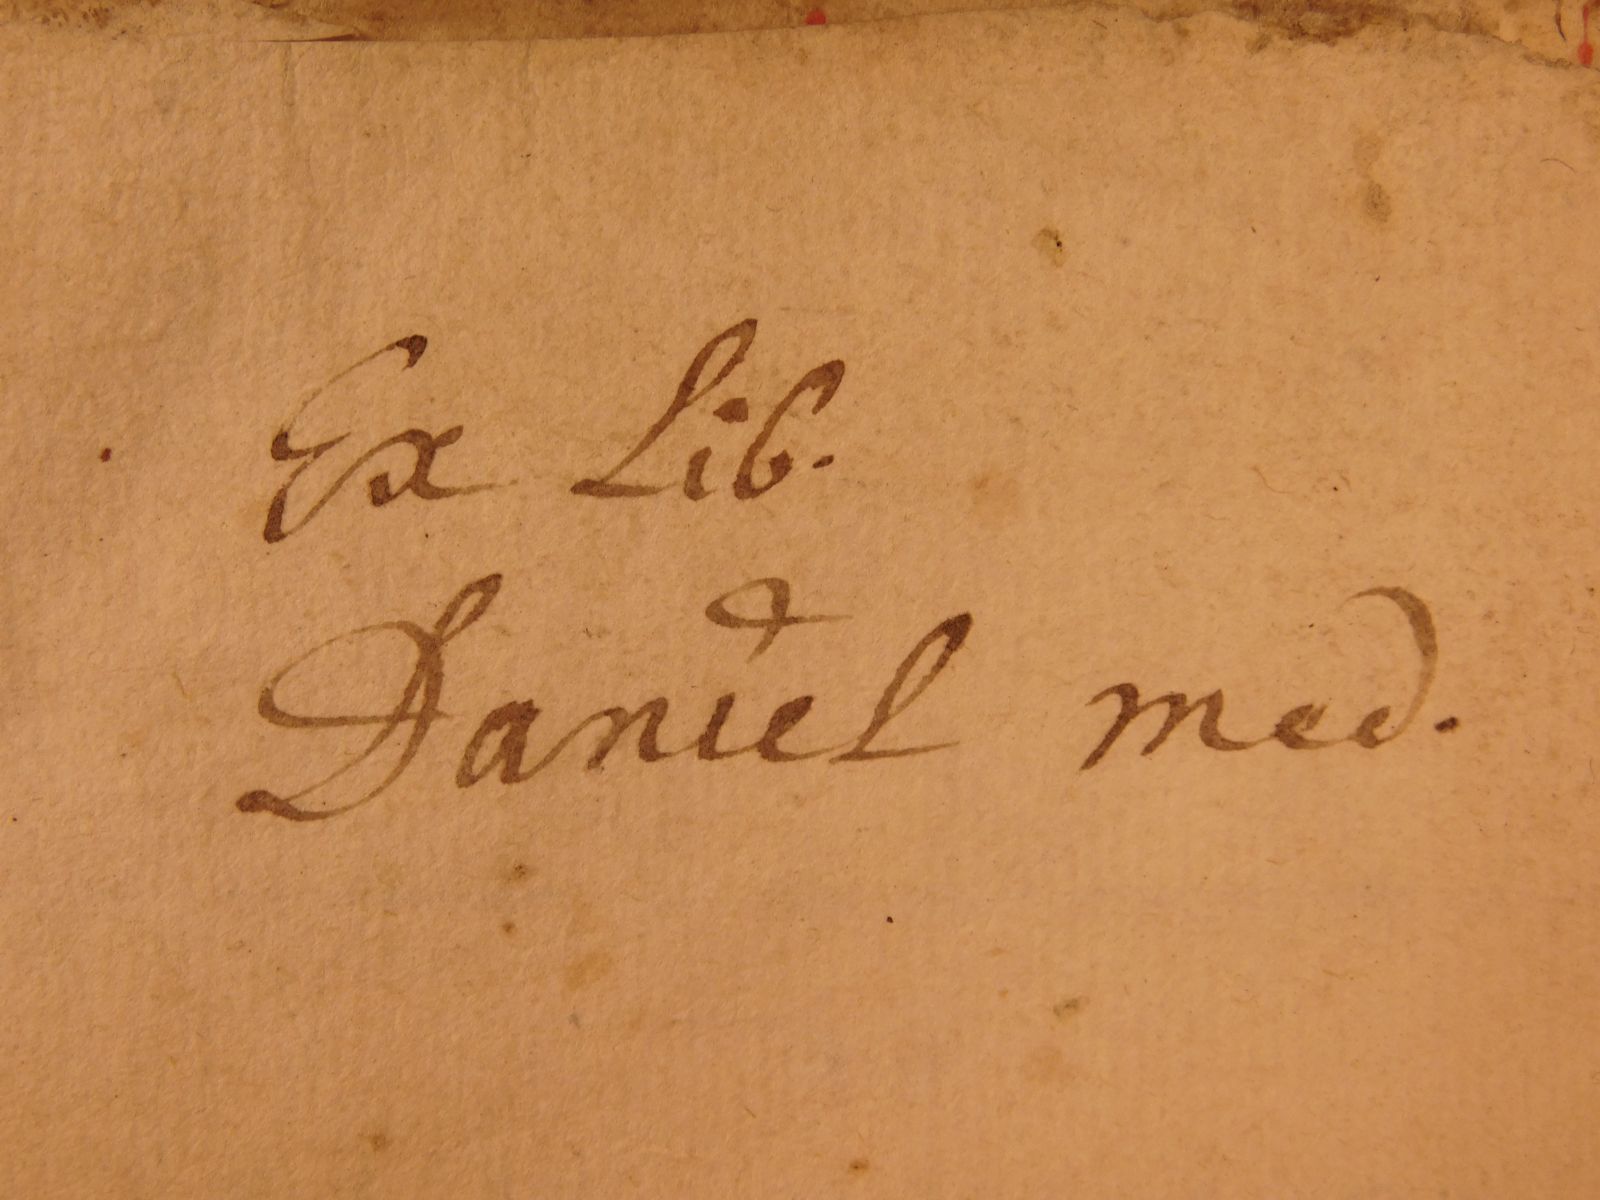 Ex Lib.
Daniel med.